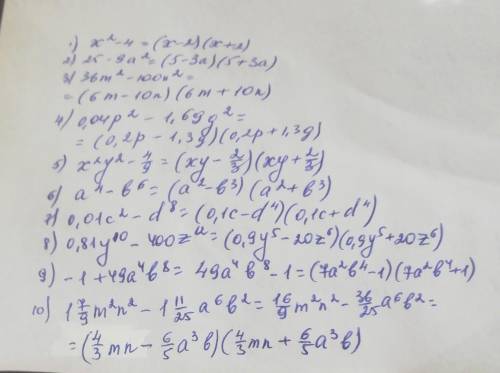 1) x² - 4 = (x-2)(x+2)
2) 25 - 9a² = (5-3a)(5+3a)
3) 36m² - 100n² =
= (6m - 10n)(6m + 10n)
4) 0,04p² - 1,69q² =
= (0,2p - 1,3q)(0,2p + 1,3q)
5) x²y² - 4/9 = (xy - 2/3)(xy + 2/3)
6) a⁴ - b⁶ = (a² - b³)(a² + b³)
7) 0,01c² - d⁸ = (0,1c - d⁴)(0,1c + d⁴)
8) 0,81y¹⁰ - 400z¹² = (0,9y⁵ - 20z⁶)(0,9y⁵ + 20z⁶)
9) -1 + 49a⁴b⁸ = 49a⁴b⁸ - 1 = (7a²b⁴ - 1)(7a²b⁴ + 1)
10) 1 7/9 m²n² - 1 11/25 a⁶b² = 16/9 m²n² - 36/25 a⁶b² =
= (4/3 mn - 6/5 a³b)(4/3 mn + 6/5 a³b)